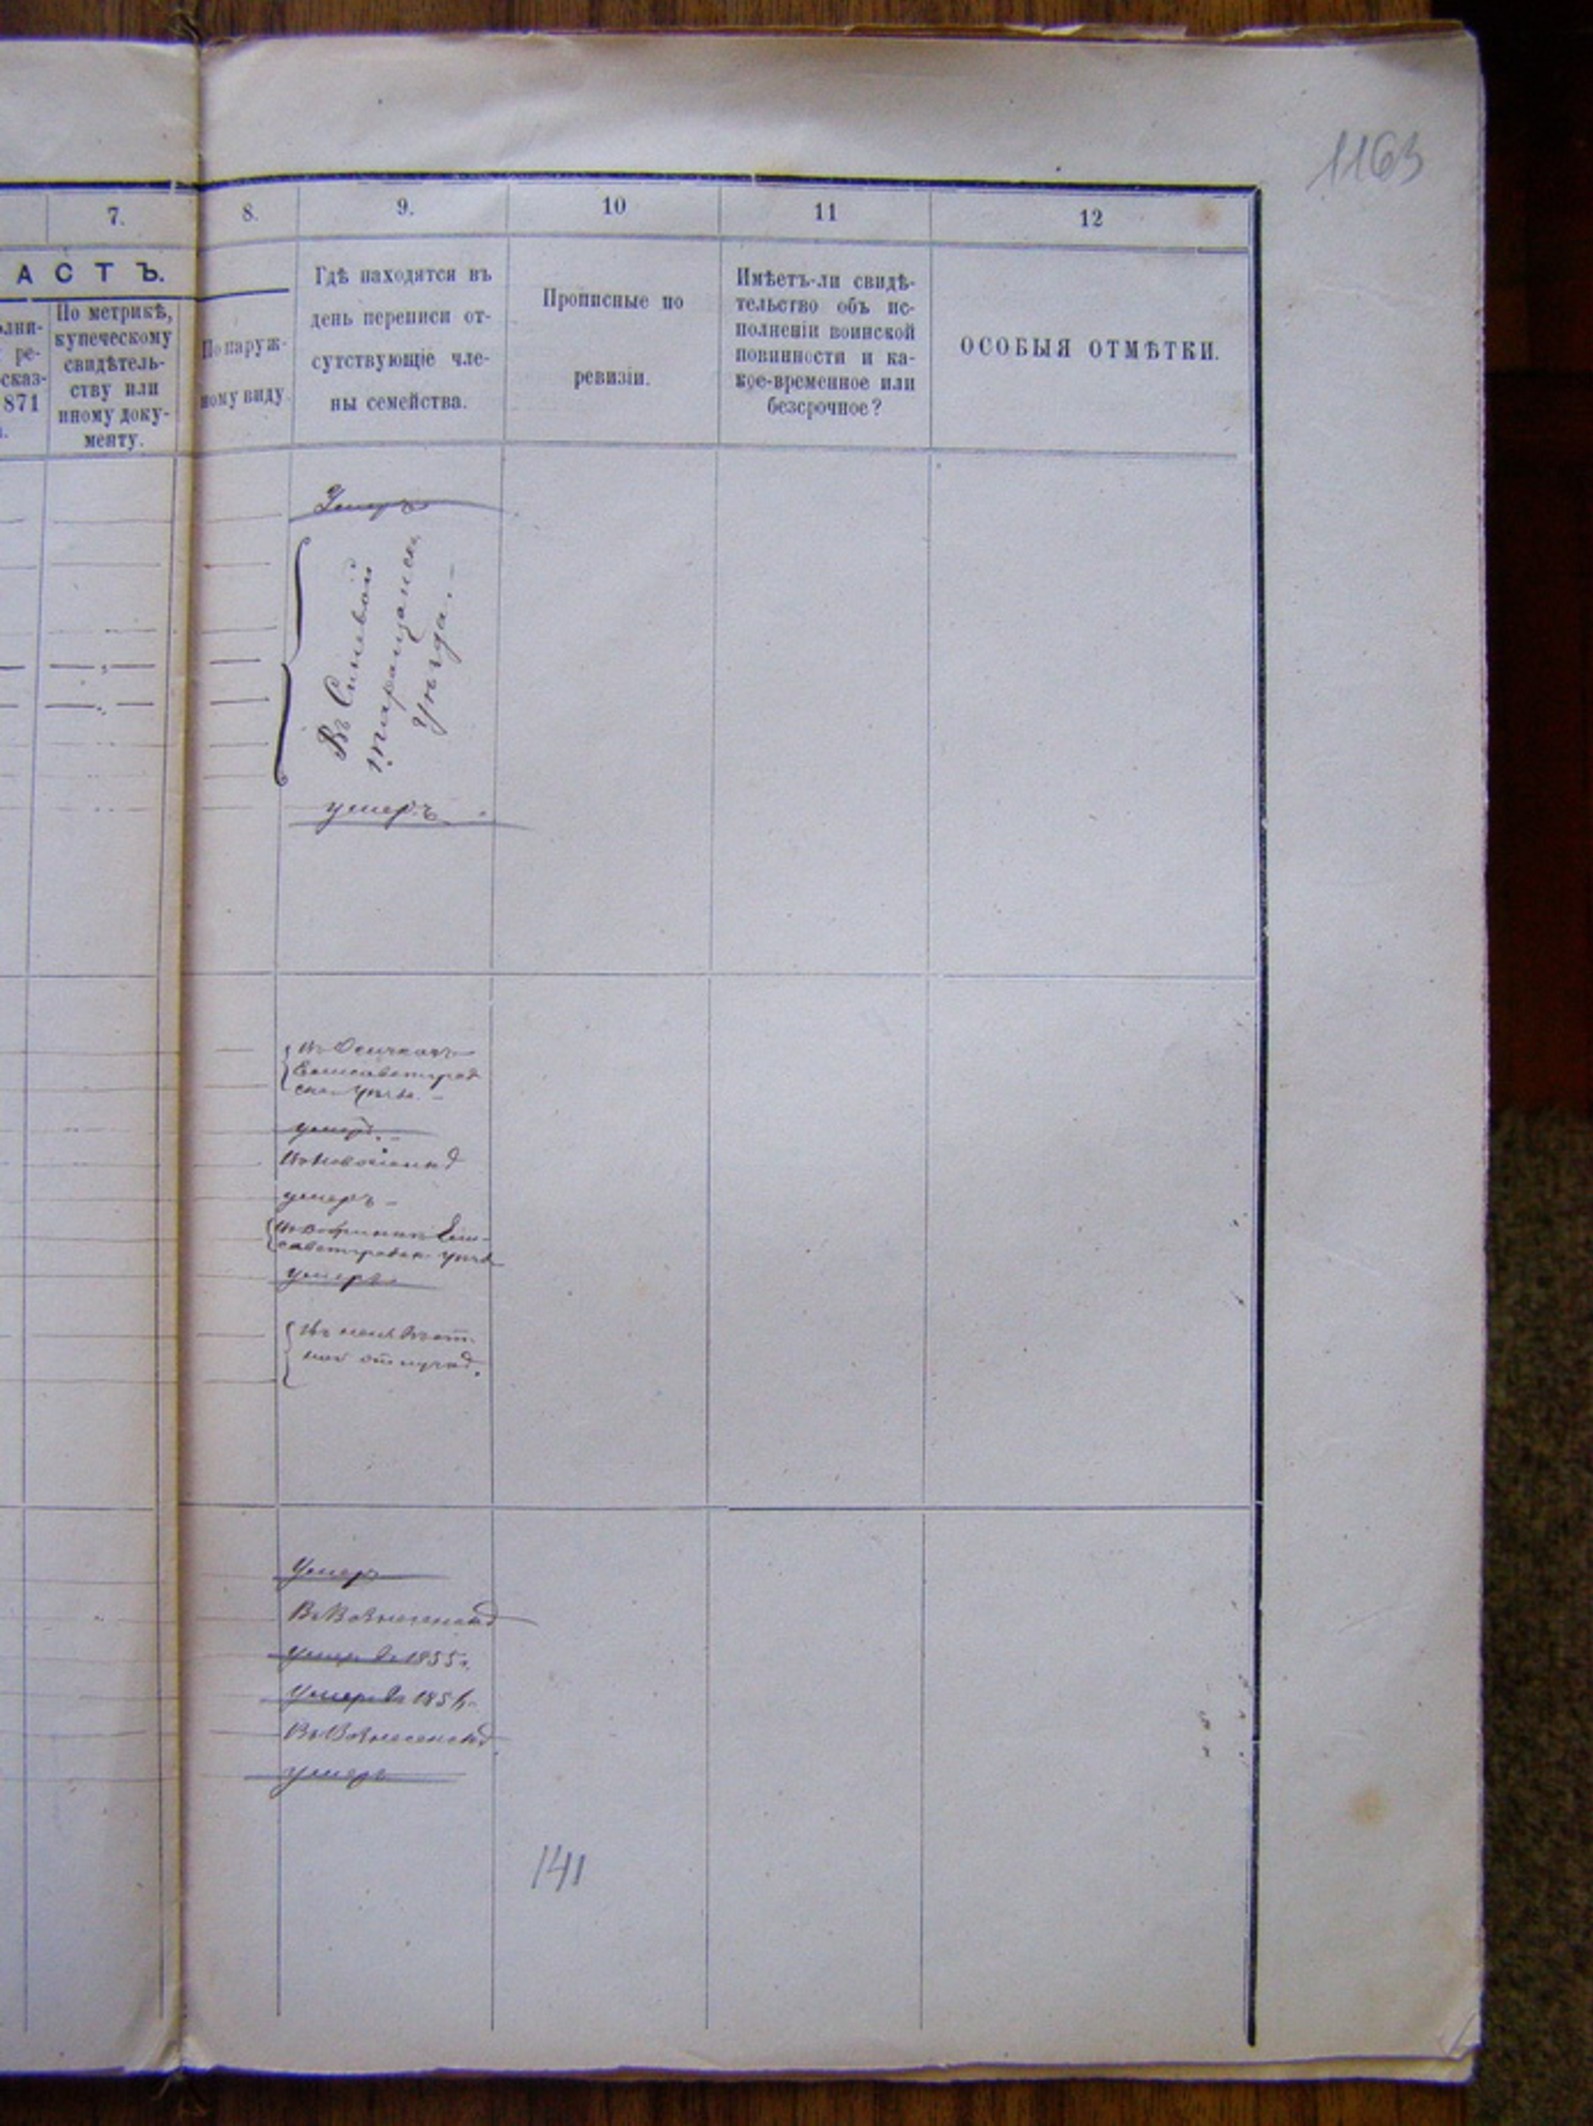 1163
7.
8.
9.
10
11
12
АСТЪ.
олни-
ре-
сказ-
871
По метрикѣ,
купеческому
свидѣтель-
ству или
иному доку-
менту.
По наруж-
ному виду.
Гдѣ находятся въ
день переписи от-
сутствующіе чле-
ны семейства.
Прописные по
ревизіи.
Имѣетъ-ли свидѣ-
тельство объ ис-
полненіи воинской
повинности и ка-
кое-временное или
безсрочное?
ОСОБЫЯ ОТМѢТКИ.
Умеръ
Въ Синевой
Таращанск.
Уѣзда.
умеръ
Елисаветград
умеръ.
умеръ
умеръ
Умеръ
Въ Вознесенскѣ
умеръ въ 1855 г.
Умеръ въ 185
Въ Вознесенскѣ
умеръ
141